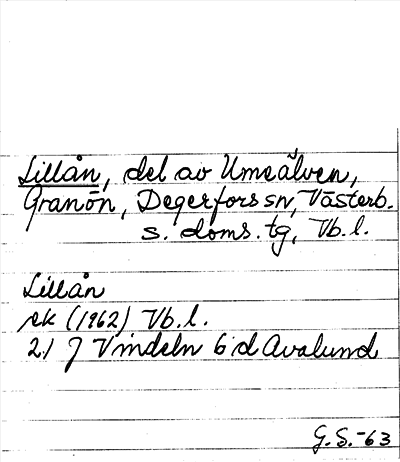 Lillån, del av Umeälven,
Granön, Degerfors sn, Västerb.
s. doms. tg, Vb. l.
Lillån
ek (1962) Vb. l.
21 J Vindeln 6 d Avalund
G. S. -63